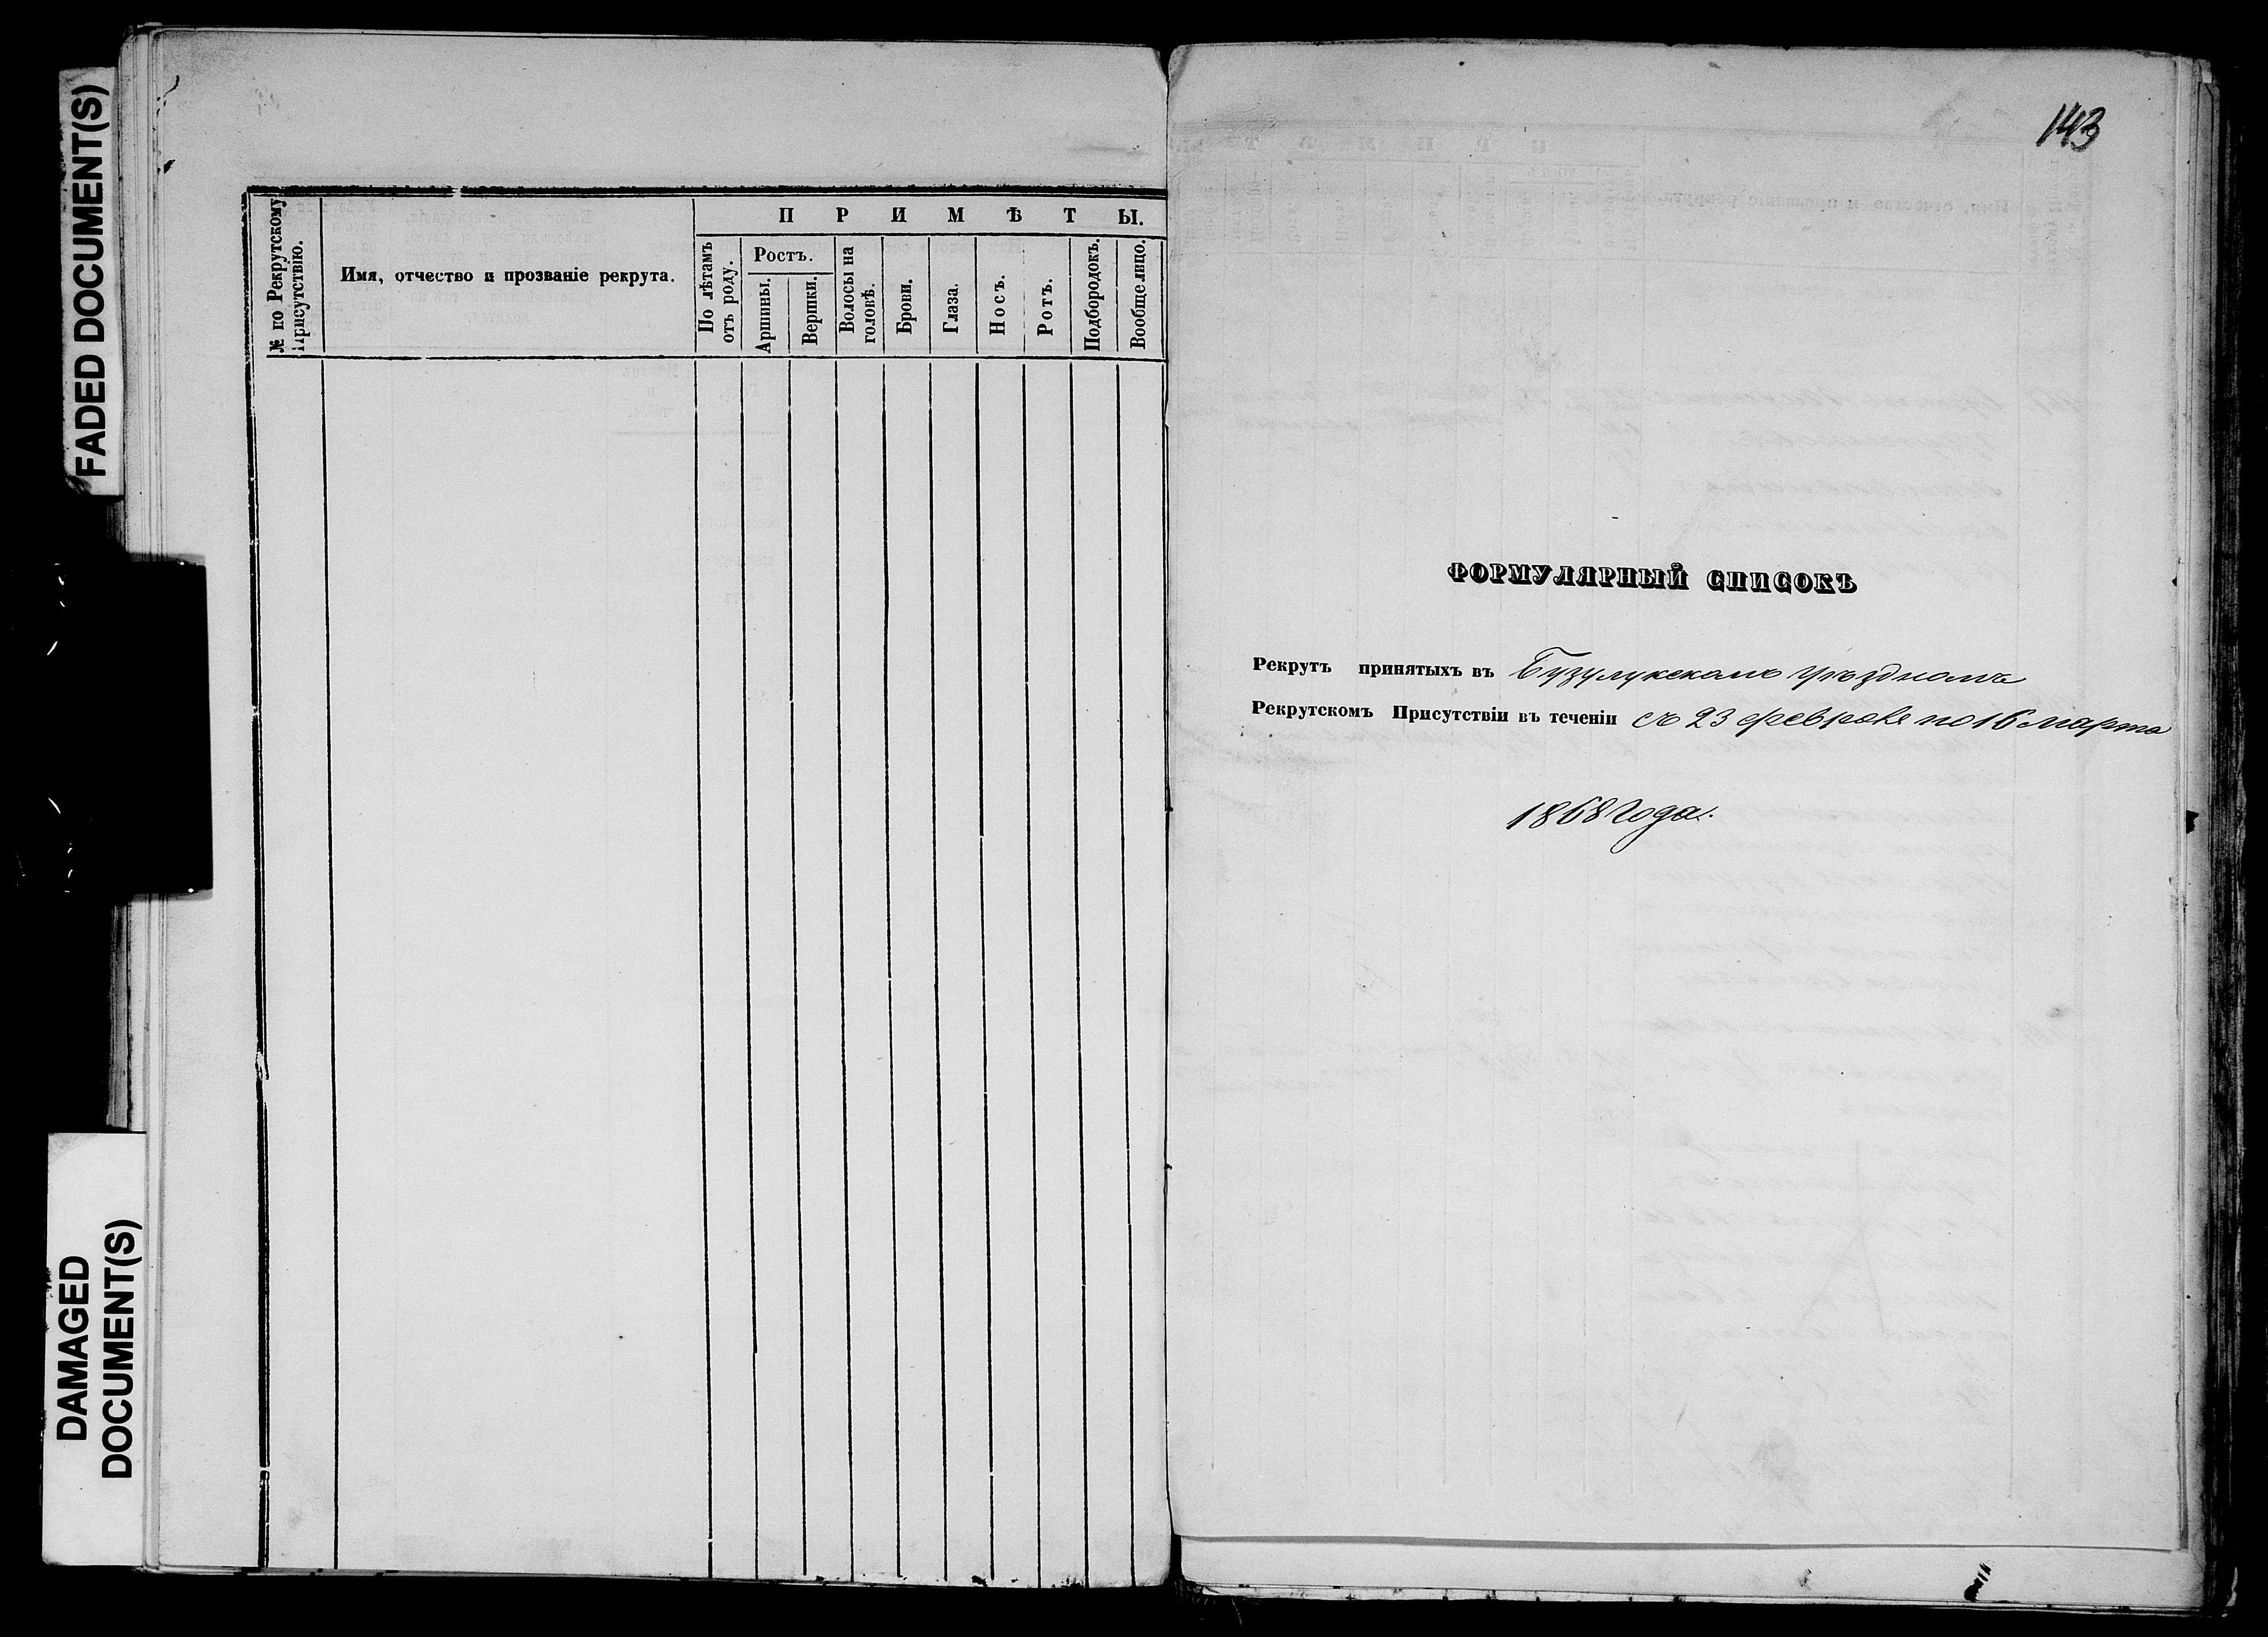 FADED DOCUMENT(S)
DAMAGED
DOCUMENT(S)
№ по Рекрутскому
Присутствію.
Имя, отчество и прозваніе рекрута.
ПРИМѢТЫ.
По лѣтамъ
отъ роду.
Ростъ.
Аршины.
Вершки.
Волосы на
головѣ.
Брови.
Глаза.
Носъ.
Ротъ.
Подбородокъ.
Вообще лицо.
143
ФОРМУЛЯРНЫЙ СПИСОКЪ
Рекрутъ принятыхъ въ Бузулукскомъ Уѣздномъ
Рекрутскомъ Присутствіи въ теченіи съ 23 февраля по 16 марта
1868 года.